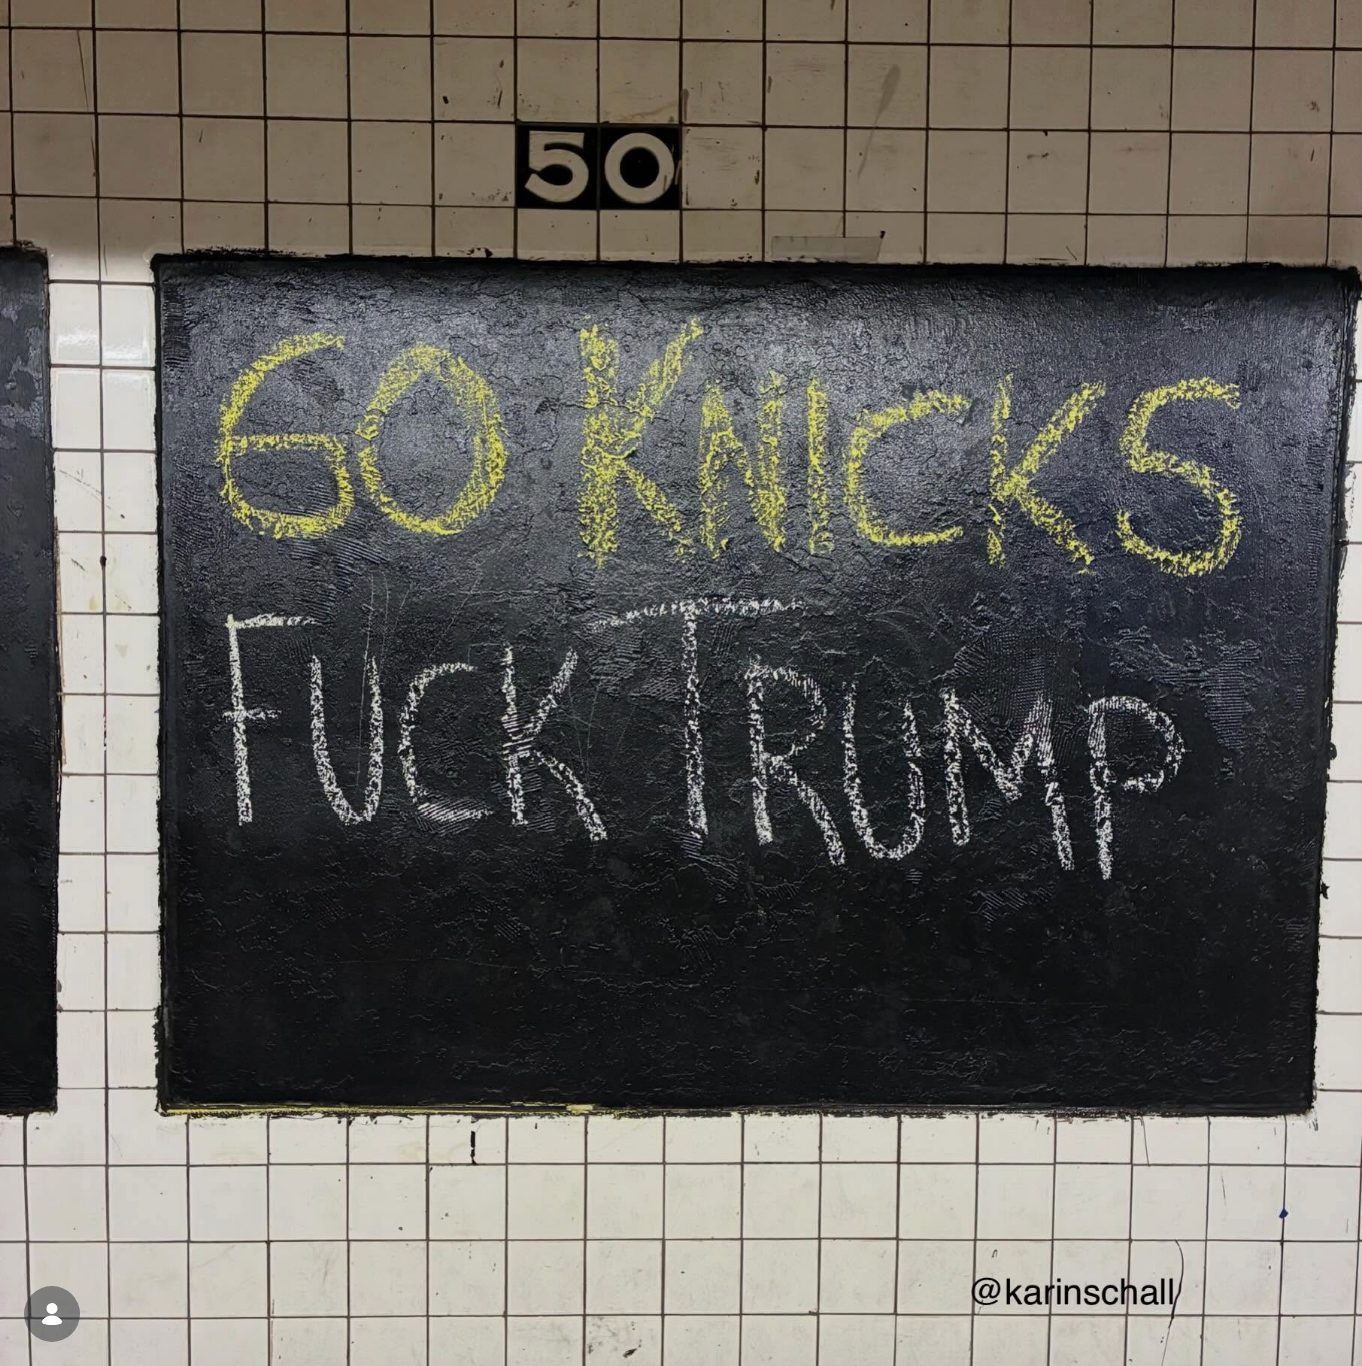 50
GO KNICKS
FUCK TRUMP
@karinschall